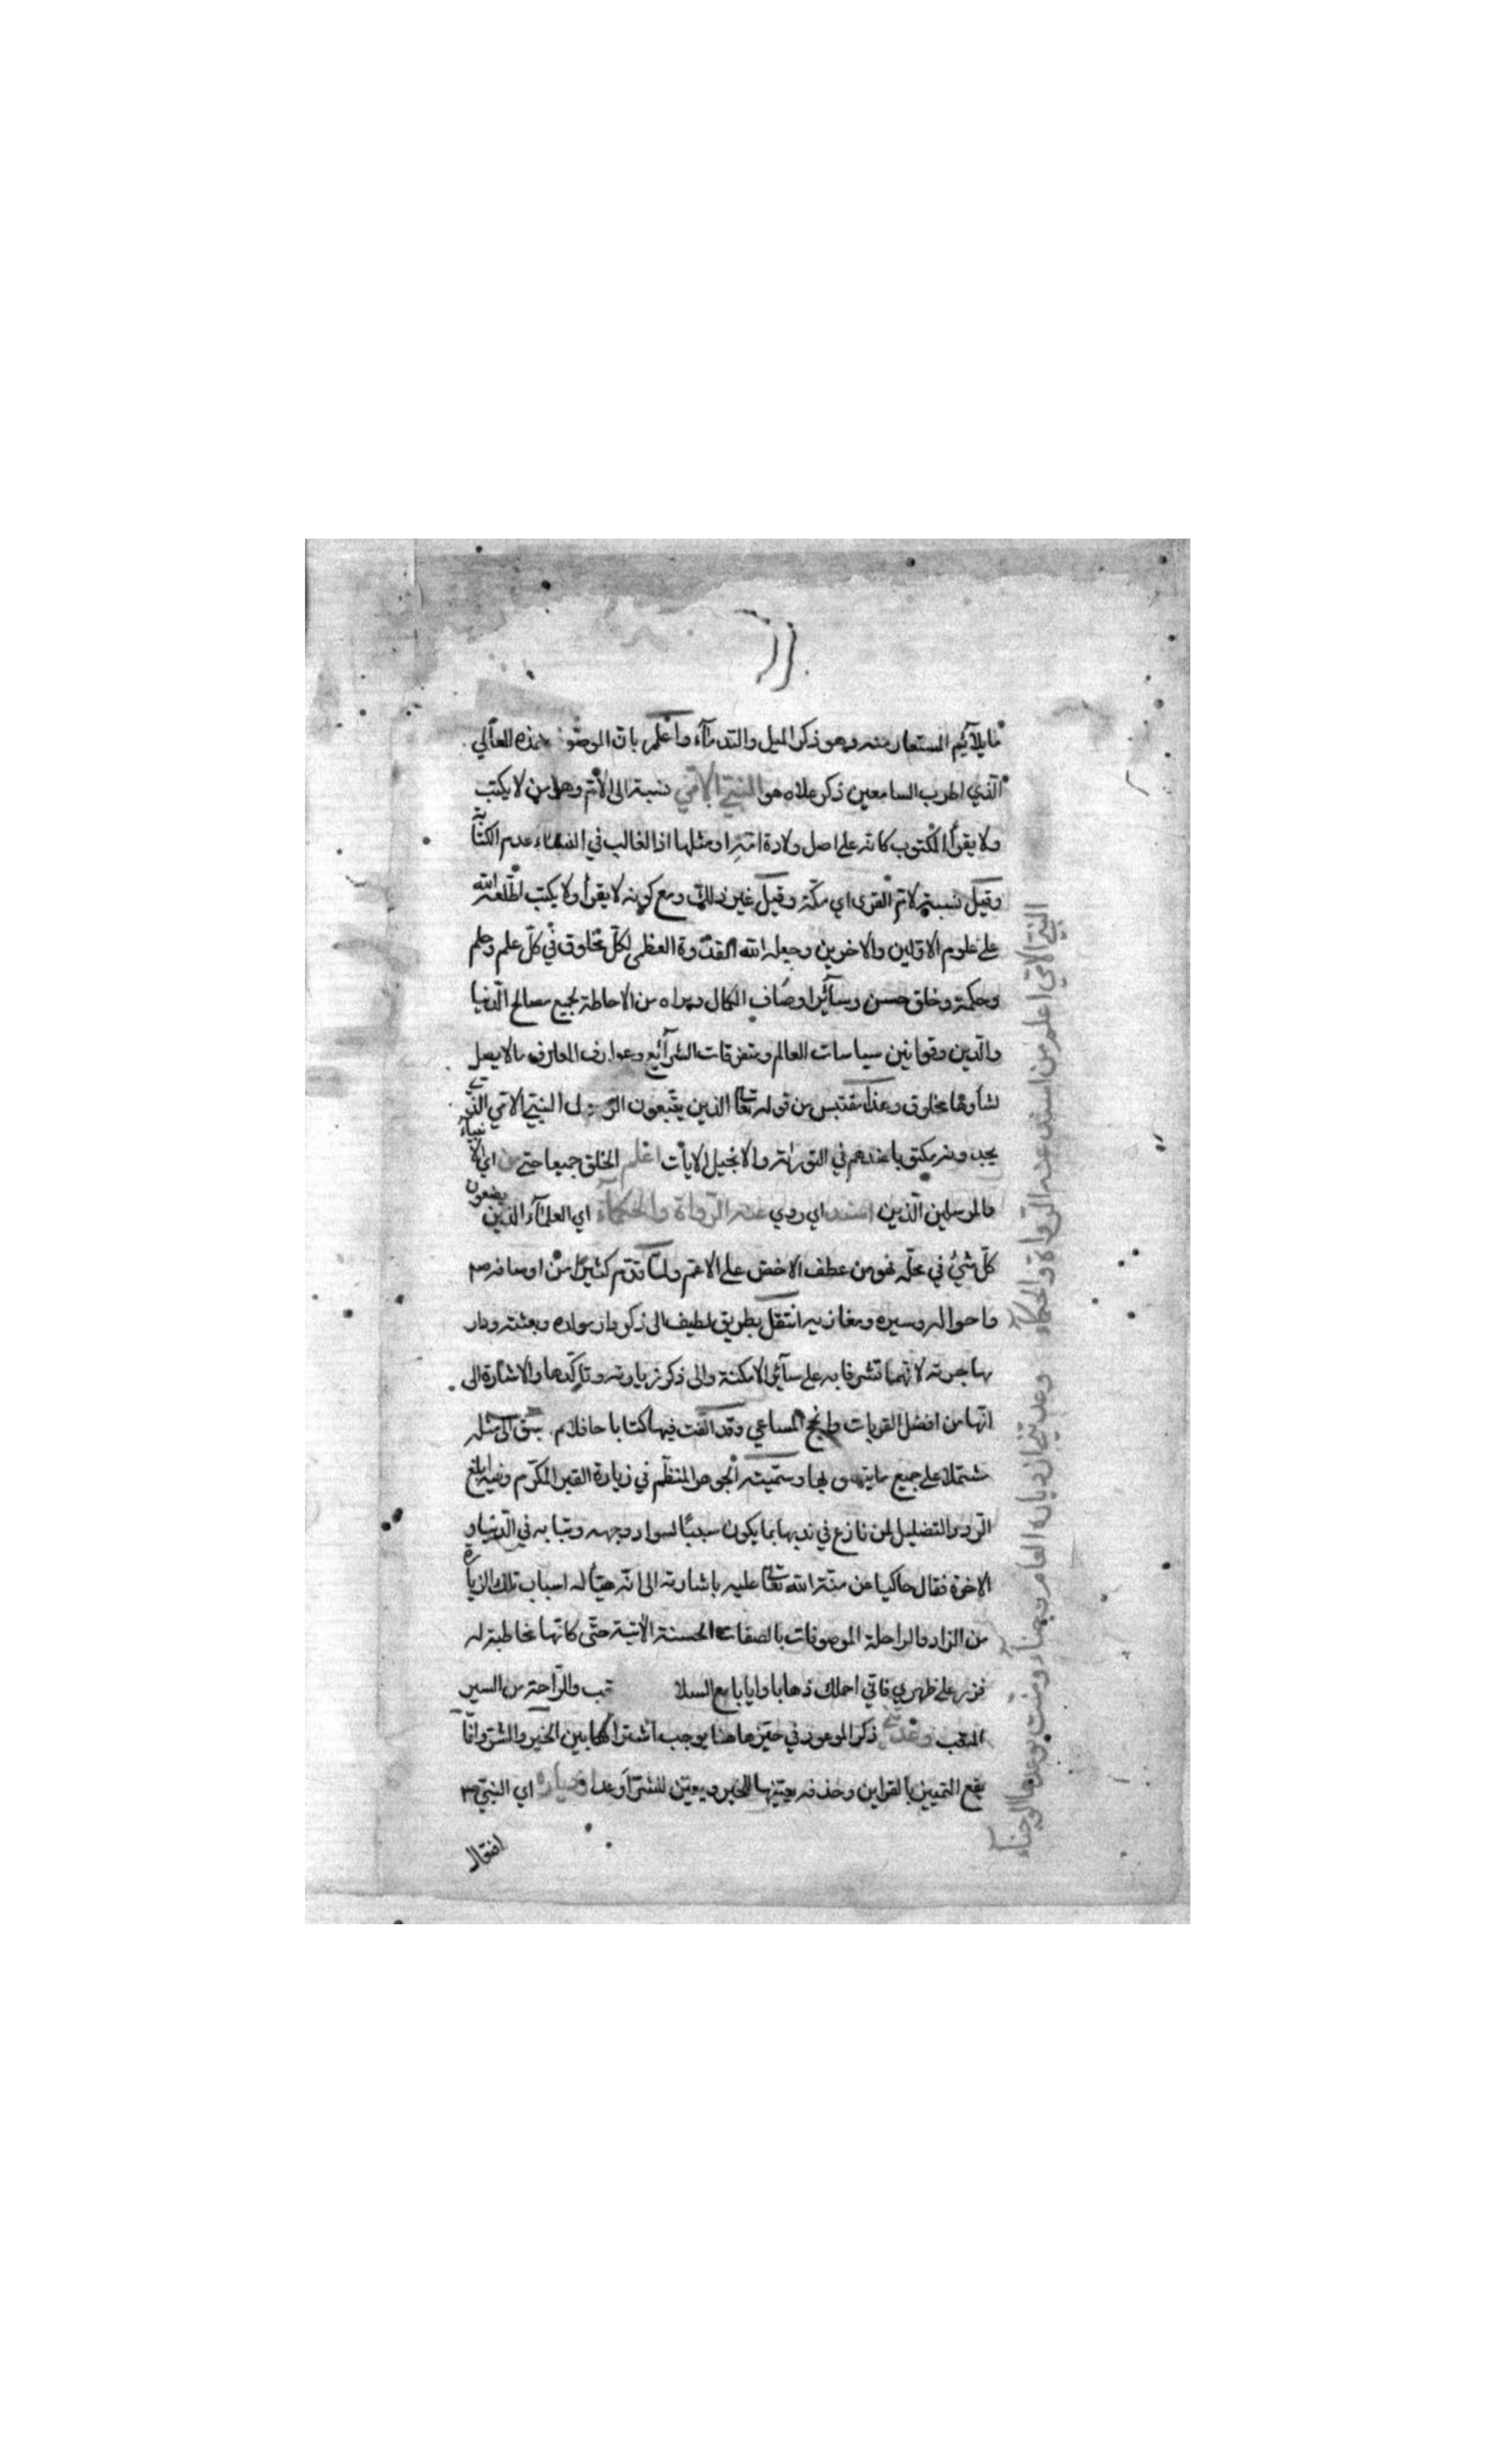 ما يلآئيم المستعار منه وهو ذكر الميل والندمآء واعلم بان الموصوف بهذه المعالي
الّذي اطرب السامعين ذكر علاه هو النبيّ الأمّي نسبة الى الأمّ وهو من لا يكتب
ولا يقرأ المكتوب كانه على اصل ولادة امّه او مثلها اذ الغالب في النساء عدم الكتابة
وقيل نسبة لامّ القرى اي مكّة وقيل غير ذلك ومع كونه لا يقرأ ولا يكتب اطّلعه الله
على علوم الاوّلين والاخرين وجعله الله القدوة العظمى لكلّ مخلوق في كلّ علم وحلم
وحكمة وخلق حسن وسآئر اوصاف الكمال من الاحاطة بجميع مصالح الدّنيا
والّدين وقوانين سياسات العالم ومتفرقات الشرآئع وعوارف المعارف ما لا يصل
لشأوها مخلوق وهذا مقتبس من قوله تعا الذين يتّبعون الرسول النبيّ الامّي الّذي
يجدونه مكتوبا عندهم في التوراة والانجيل الايات اعلم الخلق جميعا حتى من اي الانبياء
والمرسلين الّذين اسند اي روي عنه الرّواة والحكمآء اي العلمآء الّذين يضعون
كلّ شئ في محلّه فهو من عطف الاخصّ على الاعمّ ولمّا قدّم كثيرًا من اوصافه صم
واحواله وسيره ومغازيه انتقل بطريق لطيف الى ذكر دار مولده وبعثته ودار
مهاجرته لانّهما تشرفا به على سآئر الامكنة والى ذكر زيارته وتاكّدها والاشارة الى
انّها من افضل القربات وانجح المساعي وقد الّفت فيها كتابا حافلا لم يسبق الى مثله
مشتملا على جميع ما يتعلق بها وسمّيته الجوهر المنظّم في زيارة القبر المكرّم وفيه ابلغ
الردّ والتضليل لمن نازع في ندبها بما يكون سببًا لسواد وجهه في الّدنيا و
الاخرة فقال حاكيا عن منّة الله تعا عليه باشارته الى انّه هيّأ له اسباب تلك الزيارة
من الزاد والراحلة الموصوفات بالصفات الحسنة الاتية حتّى كانّها مخاطبة له
فزر على ظهري فاني احملك ذهابا وايابا مع السلا والرّاحة من السير
المتعب وعدتني ذكر الموعود في حيّزها هنا يوجب اشتراكها بين الخير والشرّ وانّما
يقع التمييز بالقراين وحذفه يعيّنها للخير ويعيّن للشرّ اوعد ازدياره اي النبيّ صم
افقال
النبيّ الامّي اعلم من اسند عنه الرّواة والحكمآء وعدتني ازدياره العام وجناء ومنّت بوعدها الوجناء